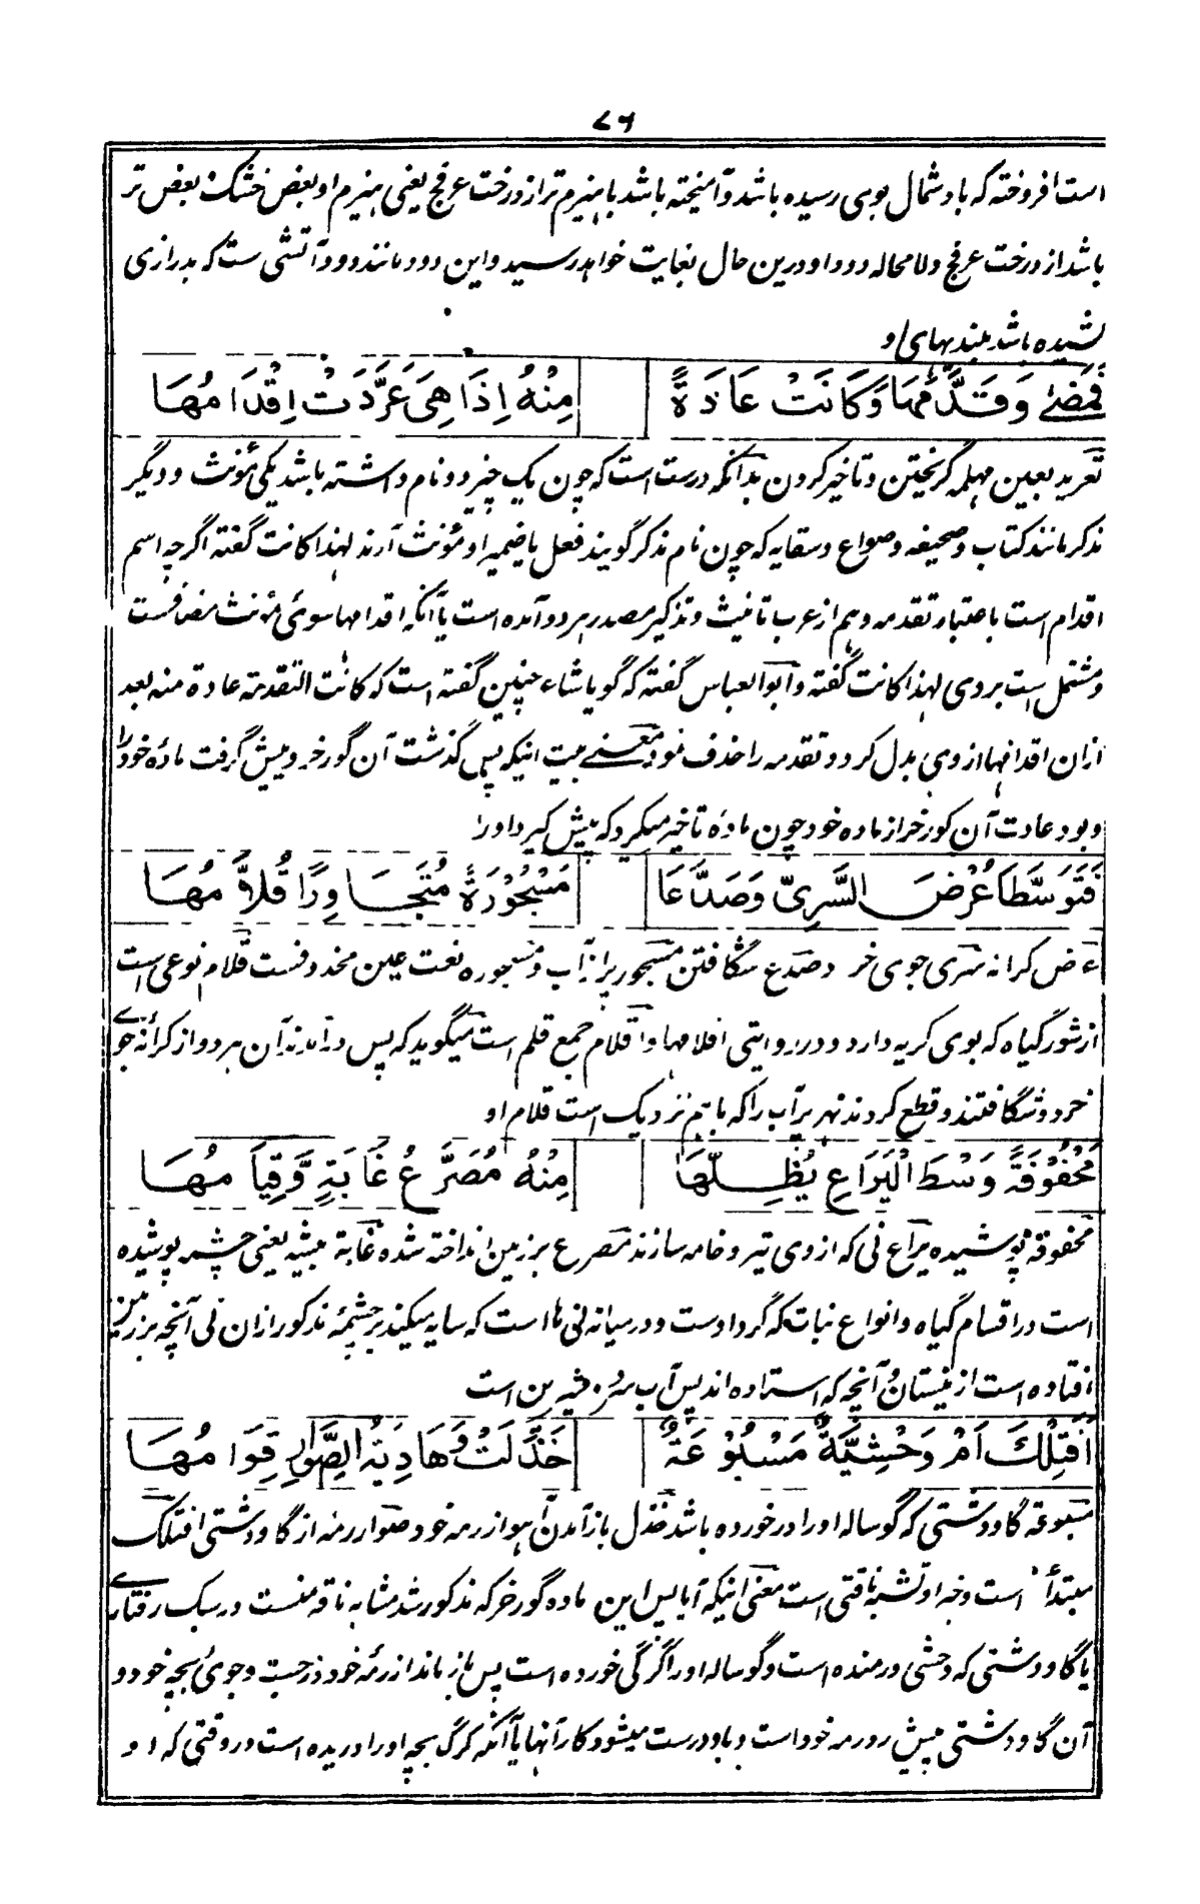 ۷۶
است افروخته که باد شمال بوی رسیده باشد و آمیخته باشد با هیزم تر از درخت عرفج یعنی هیزم او بعض خشک بعض تر
باشد از درخت عرفج و لا محاله دود او درین حال بغایت خواهد رسید و این دود مانند دود آتشی ست که بدرازی
کشیده باشد بلندیهای او
فَمَضٰى وَقَدَّمَهَا وَكَانَتْ عَادَةً مِنْهُ اِذَا هِیَ عَرَّدَتْ اِقْدَامُهَا
تعرید بعین مهمله گریختن و تاخیر کردن بدانکه درست است که چون یک چیز دو نام داشته باشد یکی مؤنث و دیگر
مذکر مانند کتاب و صحیفه و صواع و سقایه که چون نام مذکر گویند فعل یا ضمیر او مؤنث آرند لهذا کانت گفته اگرچه اسم
اقدام است باعتبار تقدمه و هم از عرب تانیث و تذکیر مصدر هر دو آمده است یا آنکه اقدامها سوی مؤنث مضافست
و مشتمل است بروی لهذا کانت گفته و ابو العباس گفته که گویا شاعر چنین گفته است که کانت التقدمة عادة منه بعد
ازان اقدامها از وی بدل کرد و تقدمه را حذف نمود معنے بیت اینکه پس گذشت آن گورخر و پیش گرفت ماده خود را
و بود عادت آن گورخر از ماده خود چون ماده تاخیر میکرد که پیش گیرد او را
فَتَوَسَّطَا عُرْضَ السَّرِیِّ وَصَدَّعَا مَسْجُوْرَةً مُتَجَاوِرًا قُلَّامُهَا
عرض کرانه سری جوی خرد صدع شگافتن مسجور پر از آب و مسجوره نعت عین محذوفست قلام نوعی است
از شور گیاه که بوی کریه دارد و در روایتی اقلامها و اقلام جمع قلم است میگوید که پس در آمدند آن هر دو از کرانه جوے
خرد و شگافتند و قطع کردند نهر پر آب را که با هم نزدیک است قلام او
مَحْفُوْفَةً وَسْطَ الْیَرَاعِ یُظِلُّهَا مِنْهُ مُصَرَّعُ غَابَةٍ وَّقِیَامُهَا
محفوفه پوشیده یراع نی که از وی تیر و خامه سازند مصرع بر زمین انداخته شده غابة بیشه یعنی چشمه پوشیده
است در اقسام گیاه و انواع نبات که گرد اوست و درمیانه نی ها است که سایه میکند بر چشمۀ مذکور ازان نی آنچه بر زمین
افتاده است از نیستان و آنچه که استاده اند پس آب سرد و شیرین است
اَفَتِلْكَ اَمْ وَحْشِیَّةٌ مَسْبُوْعَةٌ خَذَلَتْ وَهَادِیَةُ الصِّوَارِ قِوَامُهَا
مسبوعة گاو دشتی که گوساله او را در خورده باشد خذل باز آمدن آهو از رمه خود صوار رمه از گاو دشتی افتلک
مبتدأ است و خبر او تشبه ناقتی است معنی اینکه آیا پس این ماده گورخر که مذکور شد مشابه ناقه منست در سبک رفتارے
یا گاو دشتی که وحشی و رمنده است و گوساله او را گرگی خورده است پس باز ماند از رمۀ خود در جست و جوی بچه خود و
آن گاو دشتی پیش رو رمه خود است و باو درست میشود کار آنها یا آنکه گرگ بچه او را دریده است در وقتی که او